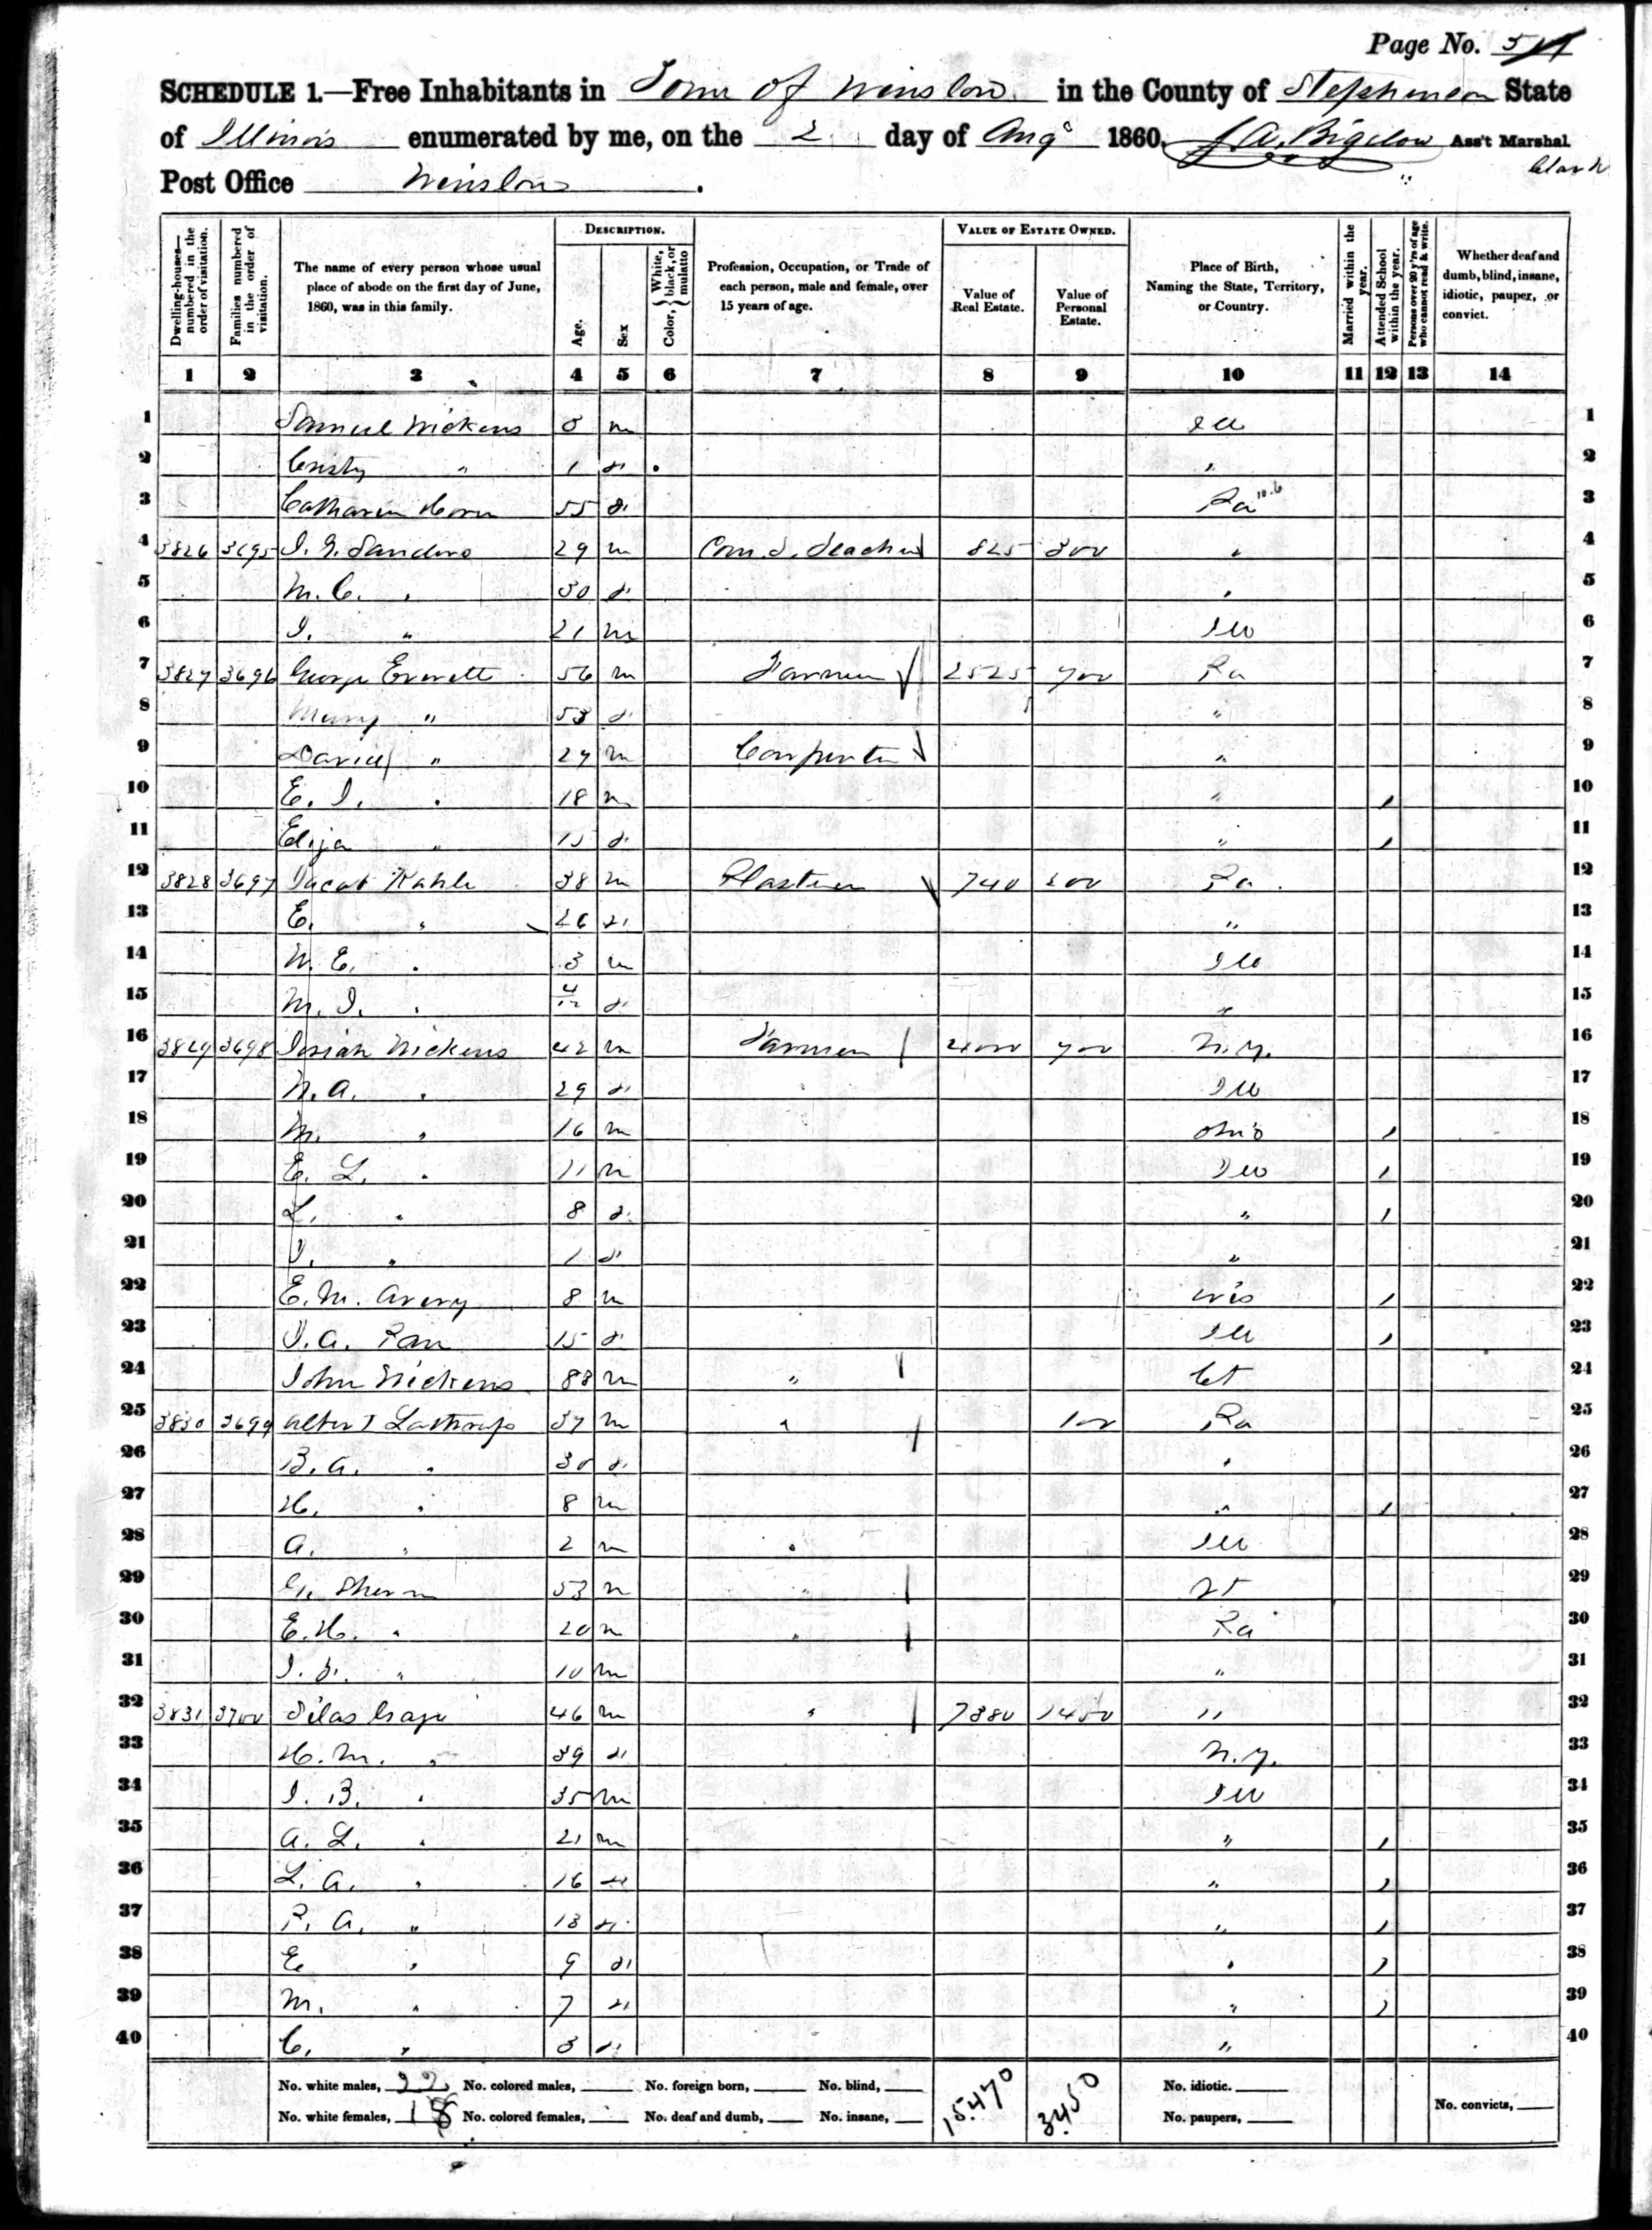 Page No. 511
SCHEDULE 1.—Free Inhabitants in Town of Winslow in the County of Stephenson State
of Illinois enumerated by me, on the 2 day of Augt 1860. J. A. Bigelow Ass't Marshal
Post Office Winslow . blank
Dwelling-houses—numbered in the order of visitation.
Families numbered in the order of visitation.
The name of every person whose usual place of abode on the first day of June, 1860, was in this family.
DESCRIPTION.
Age.
Sex
Color, { White, black, or mulatto
Profession, Occupation, or Trade of each person, male and female, over 15 years of age.
VALUE OF ESTATE OWNED.
Value of Real Estate.
Value of Personal Estate.
Place of Birth, Naming the State, Territory, or Country.
Married within the year.
Attended School within the year.
Persons over 20 y'rs of age who cannot read & write.
Whether deaf and dumb, blind, insane, idiotic, pauper, or convict.
1 2 3 4 5 6 7 8 9 10 11 12 13 14
1 Samuel 5 m Ill 1
2 " 1 f " 2
3 Catharin 55 f Pa 3
4 3826 3695 J. G. Sanders 29 m Com. S. Teacher 825 300 " 4
5 M. C. " 30 f " 5
6 J. " 21 m Ill 6
7 3827 3696 George Everette 56 m Farmer 2525 700 Pa 7
8 Mary " 53 f " 8
9 David " 27 m Carpenter " 9
10 E. J. " 18 m " / 10
11 Eliza " 15 f " / 11
12 3828 3697 Jacob Kahle 38 m Plasterer 740 200 Pa 12
13 E. " 26 f " 13
14 W. E. " 3 m Ill 14
15 M. J. " 4/12 f " 15
16 3829 3698 Josiah 42 m Farmer 4000 700 N.Y. 16
17 N. A. " 29 f Ill 17
18 M. " 16 m Ohio / 18
19 E. L. " 11 m Ill / 19
20 L. " 8 f " / 20
21 J. " 1 f " 21
22 E. M. Avery 8 m Wis / 22
23 J. A. 15 f Ill / 23
24 John 88 m " Ct 24
25 3830 3699 Albert Lathrop 37 m " 100 Pa 25
26 B. A. " 30 f " 26
27 H. " 8 m " / 27
28 A. " 2 m Ill 28
29 53 m " Vt 29
30 E. H. " 20 m " Pa 30
31 " 10 m " 31
32 3831 3700 Silas Gage 46 m " 7380 1450 " 32
33 H. M. " 39 f N.Y. 33
34 J. B. " 35 m Ill 34
35 A. L. " 21 m " / 35
36 L. A. " 16 f " / 36
37 P. A. " 13 f " / 37
38 E " 9 f " / 38
39 M. " 7 f " / 39
40 C. " 3 f " 40
No. white males, 22 No. colored males, No. foreign born, No. blind, 15,470 3,450 No. idiotic.
No. white females, 18 No. colored females, No. deaf and dumb, No. insane, No. paupers, No. convicts,